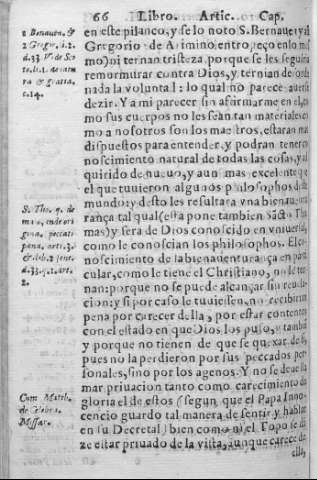 66 Libro. Artic. Cap.
en este pilanco, y se lo noto S. Bernaue. y a
Gregorio de Arimino, entro, eço en lo m
mo) ni ternan tristeza, porque se les seguiria
remormurar contra Dios, y ternian desorde
nada la voluntad: lo qual no parece auerse
dezir. Y a mi parecer sin afirmarme en el, co
mo sus cuerpos no les seàn tan materiales co
mo a nosotros son los nuestros, estaràn mas
dispuestos para entender, y podran tener co
noscimiento natural de todas las cosas, y ad
quirido de nueuo, y aun mas excelente que
el que tuuieron algunos philosophos deste
mundo: y desto les resultara vna bienauentu
rança tal qual (esta pone tambien sãcto Tho
mas) y sera de Dios conoscido en vniuersal,
como le conoscian los philosophos. El co
noscimiento de la bienauenturança en parti
cular, como le tiene el Christiano, no le ter
nan: porque no se puede alcançar sin reuela
cion: y si por caso le tuuiessen, no recibirian
pena por carecer della, por estar contentos
con el estado en que Dios los puso, y tambien
y porque no tienen de que se quexar de si,
pues no la perdieron por sus peccados per
sonales, sino por los agenos. Y no se deue lla
mar priuacion tanto como carecimiento de
gloria el destos (segun que el Papa Inno
cencio guardo tal manera de sentir, y hablar
en su Decretal) bien como ni el Topo se di
ze estar priuado de la vista, aunque carece de
ella,
S. Tho. q. de
malo,
&
2.
Cum Marth.
de Celebra.
Missar.